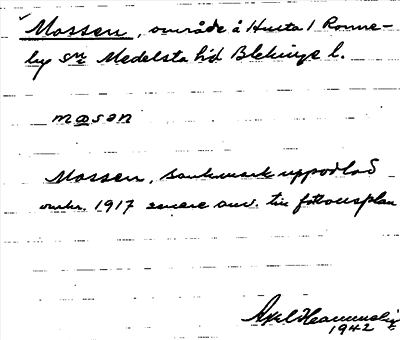 Mossen, område å Hulta 1 Ronne-
by sn Medelsta hd Blekinge l.
måsən
Mossen, sankmark uppodlad
omkr. 1917 senare anv. till fotbollsplan
Axel
1942